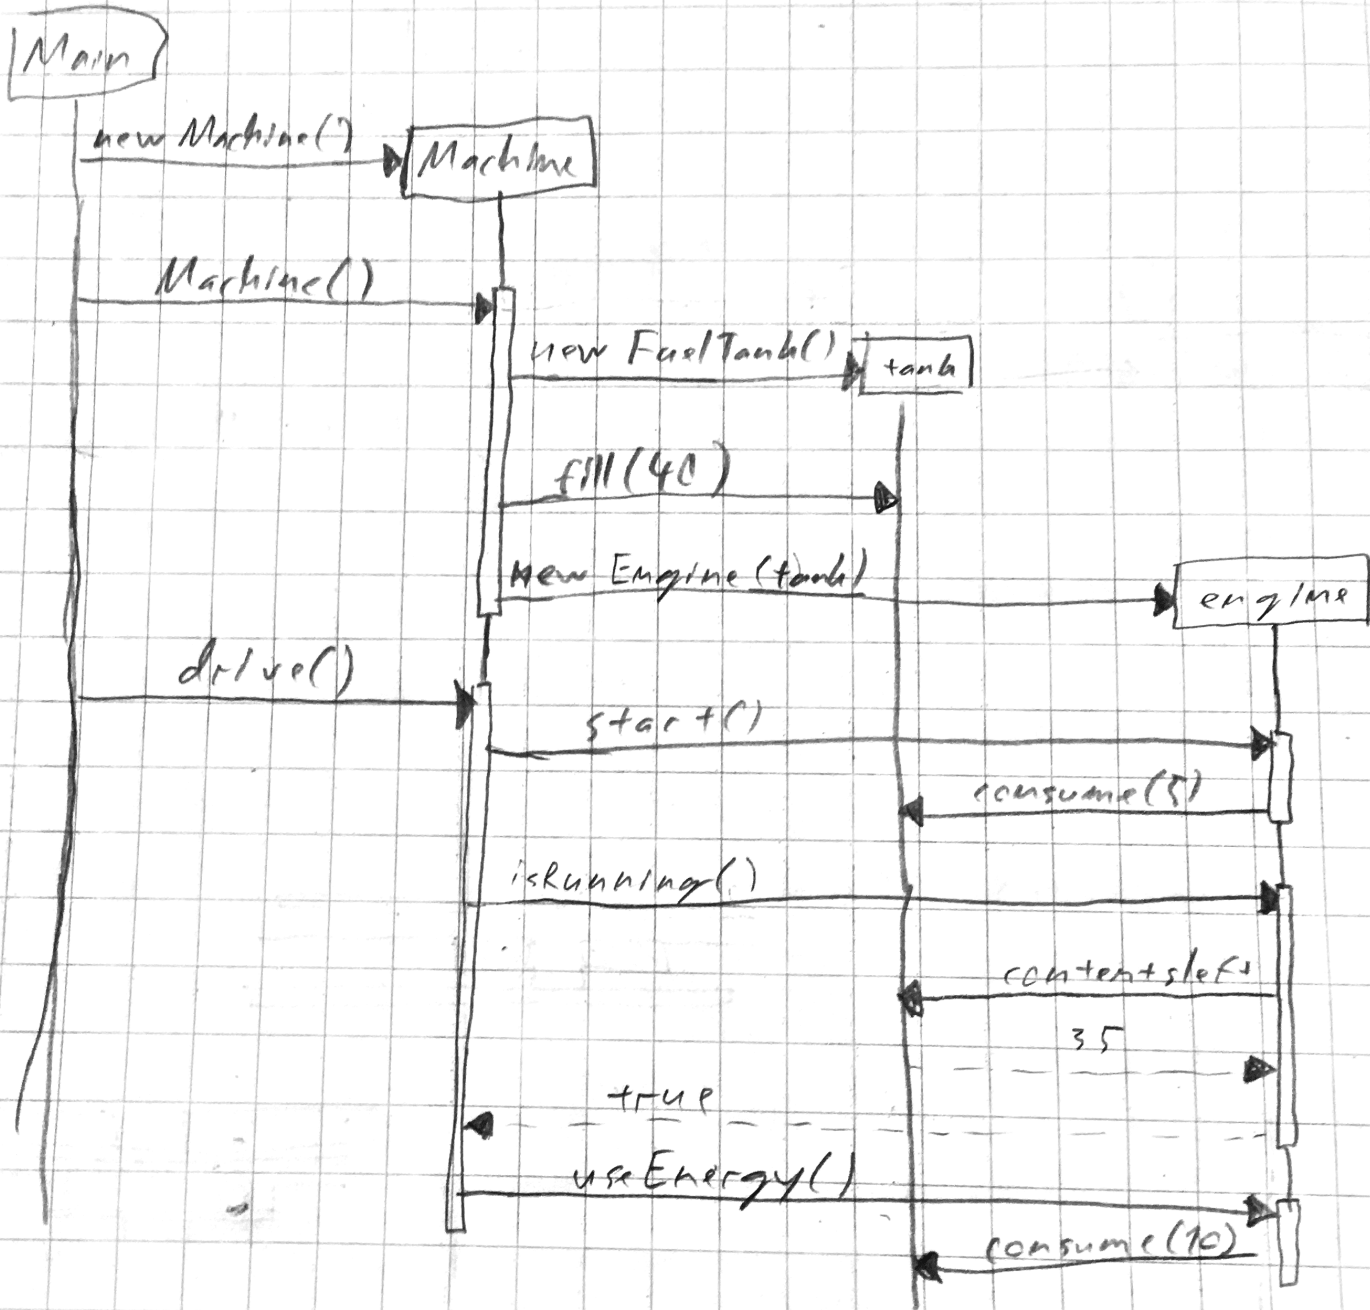 Main
new Machine()
Machine
Machine()
new FuelTank()
tank
fill(40)
new Engine(tank)
engine
drive()
start()
consume(5)
isRunning()
contentsleft
35
true
useEnergy()
consume(10)